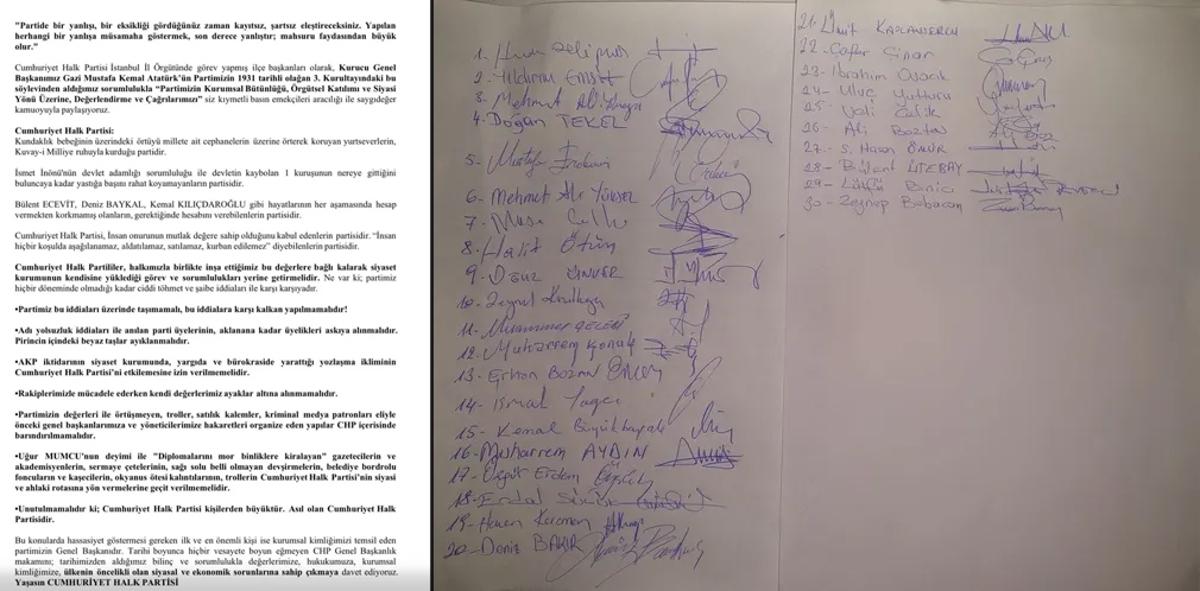 "Partide bir yanlışı, bir eksikliği gördüğünüz zaman kayıtsız, şartsız eleştireceksiniz. Yapılan
herhangi bir yanlışa müsamaha göstermek, son derece yanlıştır; mahsuru faydasından büyük
olur."
Cumhuriyet Halk Partisi İstanbul İl Örgütünde görev yapmış ilçe başkanları olarak, Kurucu Genel
Başkanımız Gazi Mustafa Kemal Atatürk'ün Partimizin 1931 tarihli olağan 3. Kurultayındaki bu
söylevinden aldığımız sorumlulukla "Partimizin Kurumsal Bütünlüğü, Örgütsel Katılımı ve Siyasi
Yönü Üzerine, Değerlendirme ve Çağrılarımızı" siz kıymetli basın emekçileri aracılığı ile saygıdeğer
kamuoyuyla paylaşıyoruz.
Cumhuriyet Halk Partisi:
Kundaklık bebeğinin üzerindeki örtüyü millete ait cephanelerin üzerine örterek koruyan yurtseverlerin,
Kuvay-i Milliye ruhuyla kurduğu partidir.
İsmet İnönü'nün devlet adamlığı sorumluluğu ile devletin kaybolan 1 kuruşunun nereye gittiğini
buluncaya kadar yastığa başını rahat koyamayanların partisidir.
Bülent ECEVİT, Deniz BAYKAL, Kemal KILIÇDAROĞLU gibi hayatlarının her aşamasında hesap
vermekten korkmamış olanların, gerektiğinde hesabını verebilenlerin partisidir.
Cumhuriyet Halk Partisi, İnsan onurunun mutlak değere sahip olduğunu kabul edenlerin partisidir. "İnsan
hiçbir koşulda aşağılanamaz, aldatılamaz, satılamaz, kurban edilemez" diyebilenlerin partisidir.
Cumhuriyet Halk Partililer, halkımızla birlikte inşa ettiğimiz bu değerlere bağlı kalarak siyaset
kurumunun kendisine yüklediği görev ve sorumlulukları yerine getirmelidir. Ne var ki; partimiz
hiçbir döneminde olmadığı kadar ciddi töhmet ve şaibe iddiaları ile karşı karşıyadır.
•Partimiz bu iddiaları üzerinde taşımamalı, bu iddialara karşı kalkan yapılmamalıdır!
•Adı yolsuzluk iddiaları ile anılan parti üyelerinin, aklanana kadar üyelikleri askıya alınmalıdır.
Pirincin içindeki beyaz taşlar ayıklanmalıdır.
•AKP iktidarının siyaset kurumunda, yargıda ve bürokraside yarattığı yozlaşma ikliminin
Cumhuriyet Halk Partisi'ni etkilemesine izin verilmemelidir.
•Rakiplerimizle mücadele ederken kendi değerlerimiz ayaklar altına alınmamalıdır.
•Partimizin değerleri ile örtüşmeyen, troller, satılık kalemler, kriminal medya patronları eliyle
önceki genel başkanlarımıza ve yöneticilerimize hakaretleri organize eden yapılar CHP içerisinde
barındırılmamalıdır.
•Uğur MUMCU'nun deyimi ile "Diplomalarını mor binliklere kiralayan" gazetecilerin ve
akademisyenlerin, sermaye çetelerinin, sağı solu belli olmayan devşirmelerin, belediye bordrolu
foncuların ve kaşecilerin, okyanus ötesi kalıntılarının, trollerin Cumhuriyet Halk Partisi'nin siyasi
ve ahlaki rotasına yön vermelerine geçit verilmemelidir.
•Unutulmamalıdır ki; Cumhuriyet Halk Partisi kişilerden büyüktür. Asıl olan Cumhuriyet Halk
Partisidir.
Bu konularda hassasiyet göstermesi gereken ilk ve en önemli kişi ise kurumsal kimliğimizi temsil eden
partimizin Genel Başkanıdır. Tarihi boyunca hiçbir vesayete boyun eğmeyen CHP Genel Başkanlık
makamını; tarihimizden aldığımız bilinç ve sorumlulukla değerlerimize, hukukumuza, kurumsal
kimliğimize, ülkenin öncelikli olan siyasal ve ekonomik sorunlarına sahip çıkmaya davet ediyoruz.
Yaşasın CUMHURİYET HALK PARTİSİ
1.
2. Yıldırım
3. Mehmet Ali
4. Doğan TEKEL
5. Mustafa
6. Mehmet Ali Yüksel
7. Musa
8. Halit Ötün
9. Oğuz ÜNVER
10. Zeynel
11. Muammer
12. Muharrem Konuk
13. Erhan Bozan
14. İsmail Yağcı
15. Kemal
16. Muharrem AYDIN
17. Özgür Erdem
18. Erdal
19. Hasan Karaman
20. Deniz BAKIR
21. Ümit
22. Cafer Çınar
23. İbrahim Ovacık
24. Uluç Yurtturu
25. Vali Çelik
26. Ali Boztan
27. S. Hasan ÖNÜR
28. Bülent
29. Lütfü Binici
30. Zeynep Babacan